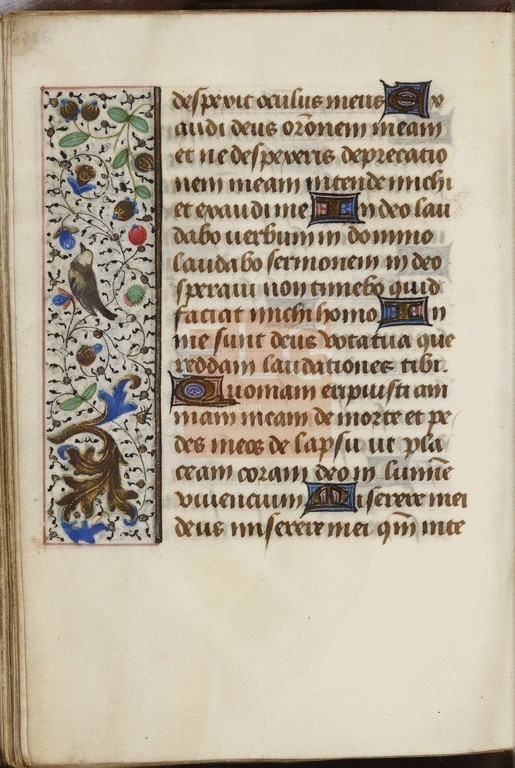 despexit oculus meus Ex
audi deus orōnem meam
et ne despexeris deprecatio
nem meam intende michi
et exaudi me In deo lau
dabo uerbum in domino
laudabo sermonem in deo
speraui non timebo quid
faciat michi homo In
me sunt deus vota tua que
reddam laudationes tibi.
Quoniam eripuisti am
mam meam de morte et pe
des meos de lapsu ut pla
ceam coram deo in lumīe
viuencium Miserere mei
deus miserere mei qm̄ in te